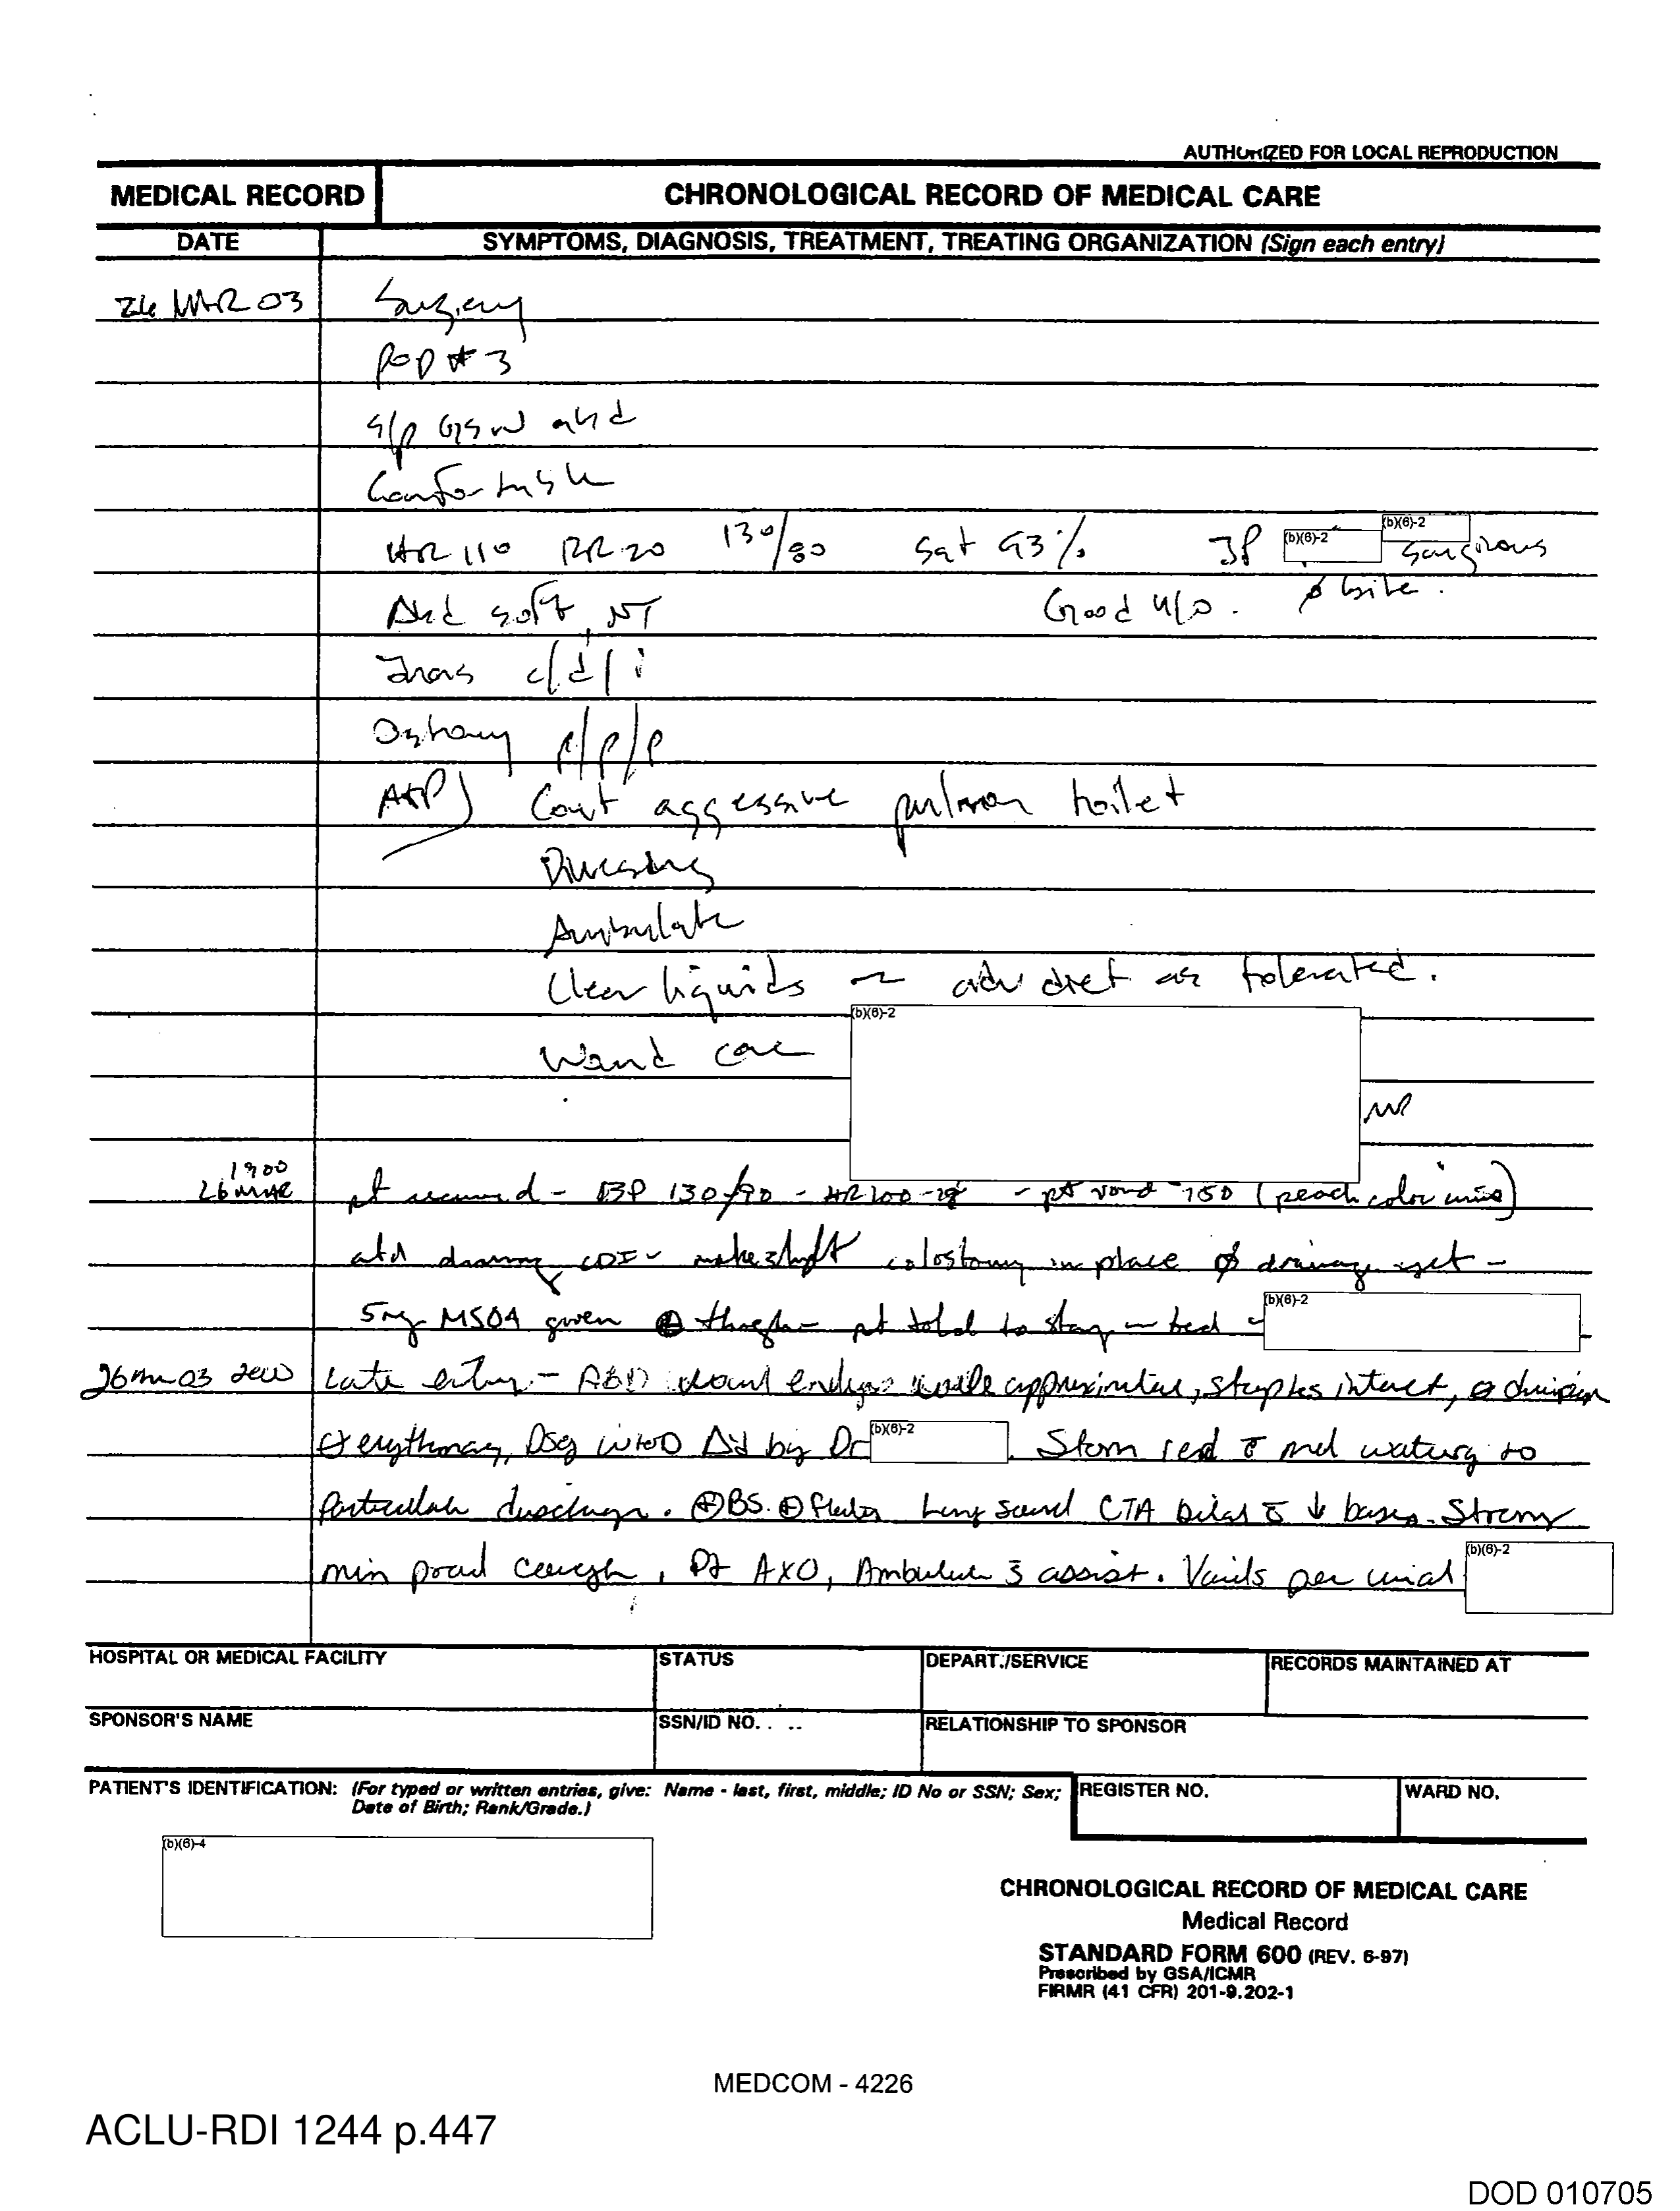 AUTHORIZED FOR LOCAL REPRODUCTION
MEDICAL RECORD
CHRONOLOGICAL RECORD OF MEDICAL CARE
DATE
SYMPTOMS, DIAGNOSIS, TREATMENT, TREATING ORGANIZATION (Sign each entry)
26 MAR 03 Surgery
POD # 3
S/p GSW abd
Comfortable
HR 110 RR 20 130/80 Sat 93% JP (b)(6)-2 (b)(6)-2 sanginous
Abd soft, NT Good u/o. ø bile.
c/d/i
Ostomy p/p/p
A+P) Cont aggessive pulmon toilet
Ambulate
Clear liquids ~ adv diet as tolerated.
Wound care (b)(6)-2
1900
26 MAR pt received - BP 130/90 - HR 100 - pt void 750 (peach color urine)
abd CDI - makeshift colostomy in place ø drainage yet -
5mg MSO4 given pt told to stay in bed - (b)(6)-2
26 Mar 03 2000 Late entry - ABD wound edges well approximated, staples intact, ø
erythema, Dsg W→D Δ'd by Dr (b)(6)-2. Stoma red c̄ mod watery to
particulate discharge. ⊕BS. ⊕flatus. Lung sound CTA bilat c̄ ↓ bases. Strong
min prod cough, Pt AXO, Ambulate s̄ assist. (b)(6)-2
HOSPITAL OR MEDICAL FACILITY
STATUS
DEPART./SERVICE
RECORDS MAINTAINED AT
SPONSOR'S NAME
SSN/ID NO.
RELATIONSHIP TO SPONSOR
PATIENT'S IDENTIFICATION: (For typed or written entries, give: Name - last, first, middle; ID No or SSN; Sex;
Date of Birth; Rank/Grade.)
REGISTER NO.
WARD NO.
(b)(6)-4
CHRONOLOGICAL RECORD OF MEDICAL CARE
Medical Record
STANDARD FORM 600 (REV. 6-97)
Prescribed by GSA/ICMR
FIRMR (41 CFR) 201-9.202-1
MEDCOM - 4226
ACLU-RDI 1244 p.447
DOD 010705